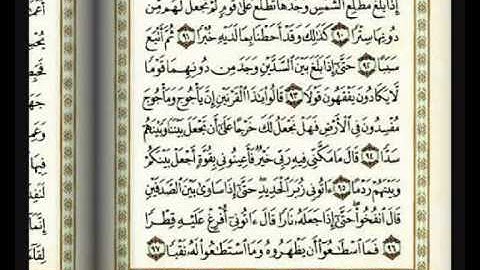 إِذَا بَلَغَ مَطْلِعَ ٱلشَّمْسِ وَجَدَهَا تَطْلُعُ عَلَىٰ قَوْمٍ لَّمْ نَجْعَل لَّهُم مِّن
دُونِهَا سِتْرًا ٩٠ كَذَٰلِكَ وَقَدْ أَحَطْنَا بِمَا لَدَيْهِ خُبْرًا ٩١ ثُمَّ أَتْبَعَ
سَبَبًا ٩٢ حَتَّىٰٓ إِذَا بَلَغَ بَيْنَ ٱلسَّدَّيْنِ وَجَدَ مِن دُونِهِمَا قَوْمًا
لَّا يَكَادُونَ يَفْقَهُونَ قَوْلًا ٩٣ قَالُوا۟ يَٰذَا ٱلْقَرْنَيْنِ إِنَّ يَأْجُوجَ وَمَأْجُوجَ
مُفْسِدُونَ فِى ٱلْأَرْضِ فَهَلْ نَجْعَلُ لَكَ خَرْجًا عَلَىٰٓ أَن تَجْعَلَ بَيْنَنَا وَبَيْنَهُمْ
سَدًّا ٩٤ قَالَ مَا مَكَّنِّى فِيهِ رَبِّى خَيْرٌ فَأَعِينُونِى بِقُوَّةٍ أَجْعَلْ بَيْنَكُمْ
وَبَيْنَهُمْ رَدْمًا ٩٥ ءَاتُونِى زُبَرَ ٱلْحَدِيدِ حَتَّىٰٓ إِذَا سَاوَىٰ بَيْنَ ٱلصَّدَفَيْنِ
قَالَ ٱنفُخُوا۟ حَتَّىٰٓ إِذَا جَعَلَهُۥ نَارًا قَالَ ءَاتُونِىٓ أُفْرِغْ عَلَيْهِ قِطْرًا
٩٦ فَمَا ٱسْطَٰعُوٓا۟ أَن يَظْهَرُوهُ وَمَا ٱسْتَطَٰعُوا۟ لَهُۥ نَقْبًا ٩٧